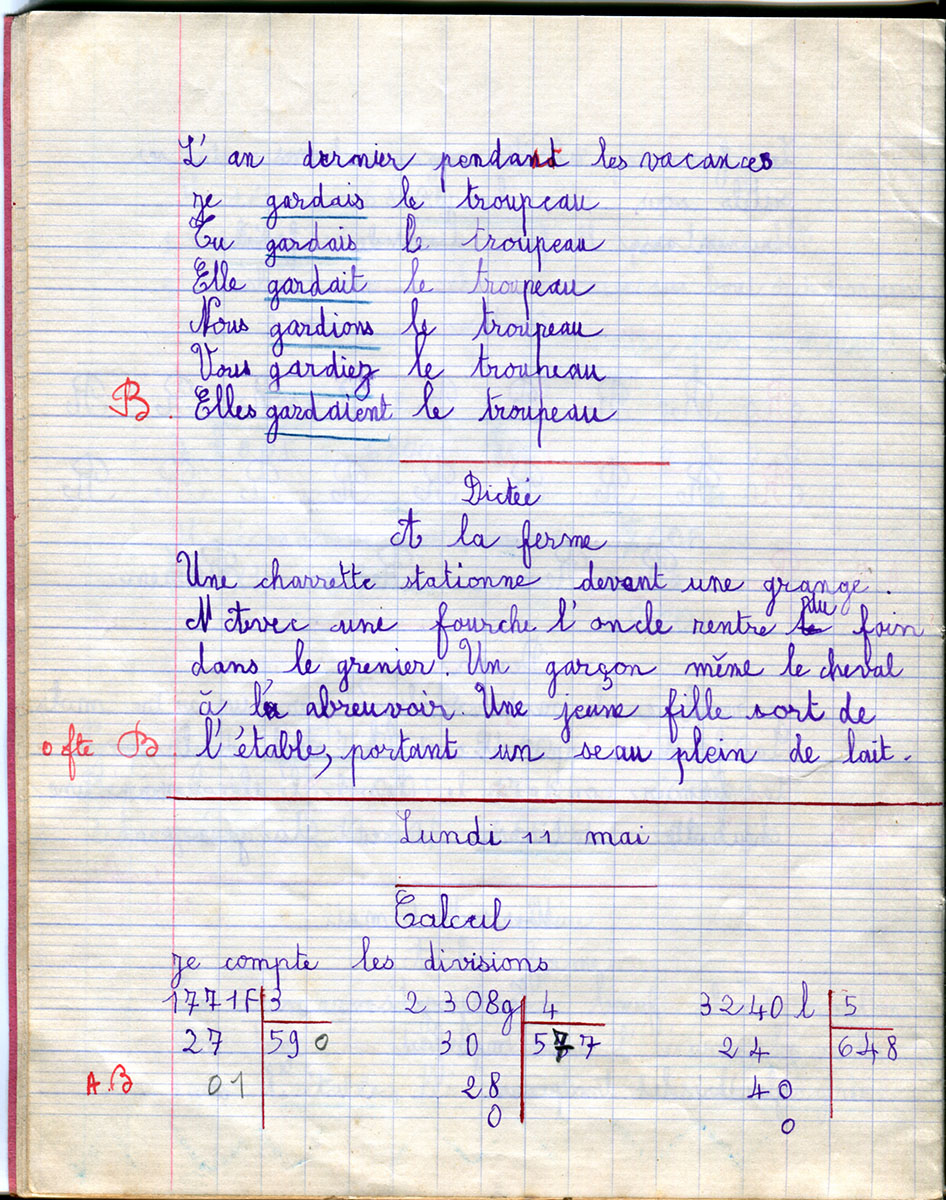 L'an dernier pendant les vacances
je gardais le troupeau
Tu gardais le troupeau
Elle gardait le troupeau
Nous gardions le troupeau
Vous gardiez le troupeau
B. Elles gardaient le troupeau
Dictée
A la ferme
Une charrette stationne devant une grange.
Avec une fourche l'oncle rentre du foin
dans le grenier. Un garçon mène le cheval
à l'abreuvoir. Une jeune fille sort de
0 fte B l'étable, portant un seau plein de lait.
Lundi 11 mai
Calcul
je compte les divisions
1771F 3 2308g 4 3240l 5
27 590 30 577 24 648
A.B 01 28 40
0 0